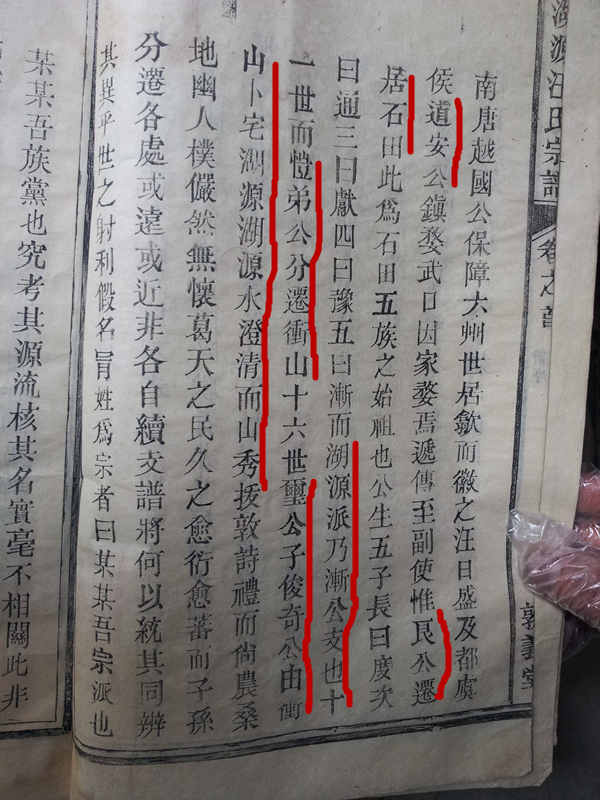 湖源汪氏宗譜
卷之首
敦義堂
南唐越國公保障六州世居歙而徽之汪日盛及都虞
侯道安公鎮婺武口因家婺焉遞傳至副使惟艮公遷
居石田此爲石田五族之始祖也公生五子長曰度次
曰通三曰獻四曰豫五曰漸而湖源派乃漸公支也十
一世而愷弟公分遷衝山十六世璽公子俊奇公由衝
山卜宅湖源湖源水澄清而山秀拔敦詩禮而尚農桑
地幽人樸儼然無懷葛天之民久之愈衍愈蕃而子孫
分遷各處或遠或近非各自續支譜將何以統其同辨
其異乎世之射利假名冒姓爲宗者曰某某吾宗派也
某某吾族黨也究考其源流核其名實毫不相關此非